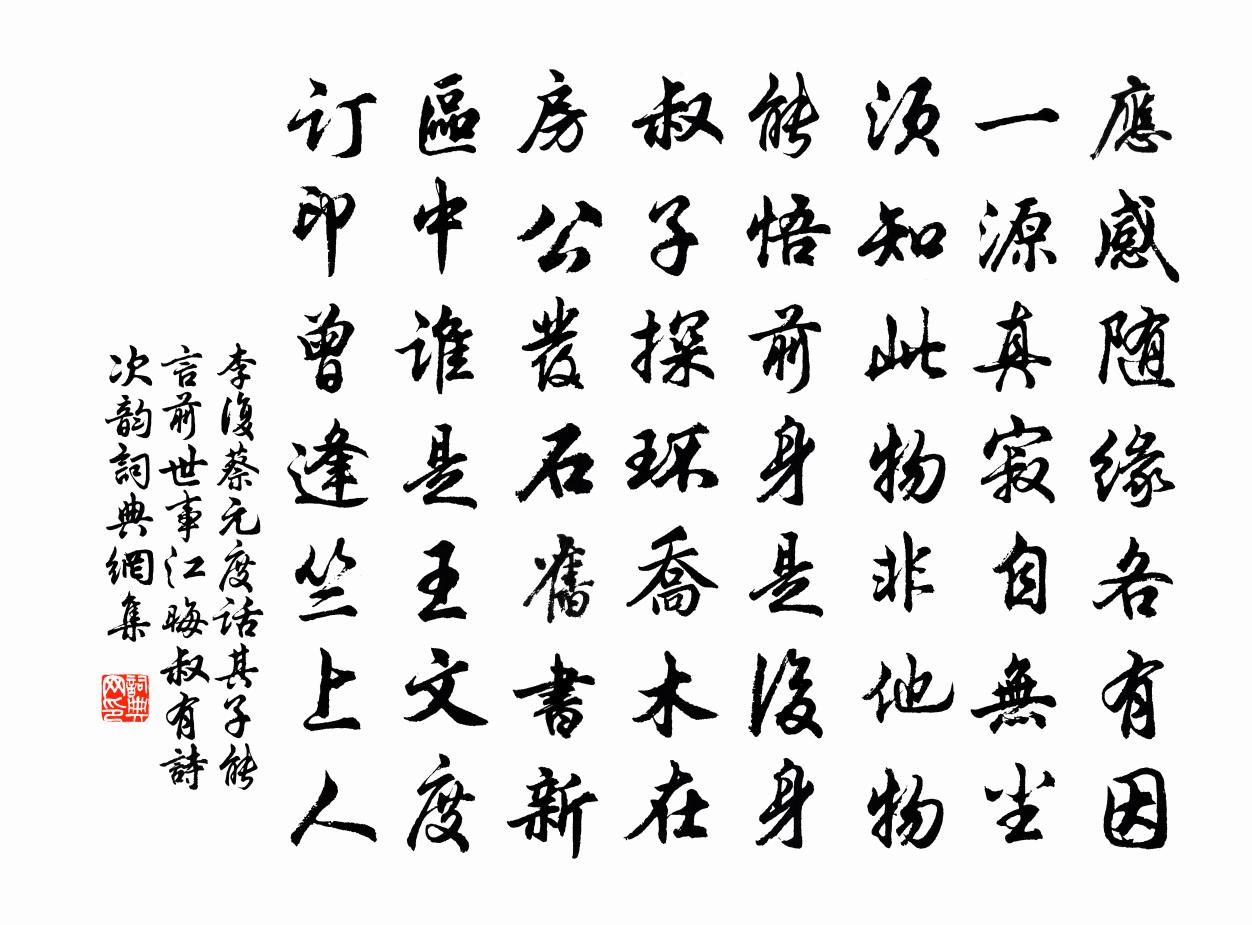 應感随缘各有因
一源真寂自無尘
須知此物非他物
能悟前身是後身
叔子探环喬木在
房公發石舊書新
區中誰是王文度
订印曾逢竺上人
李復蔡元度话其子能
言前世事江晦叔有詩
次韵詞典網集
詞典
网印